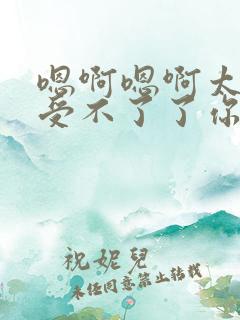 嗯啊嗯啊太
受不了了你
祝妮兒
未任同意禁止转载